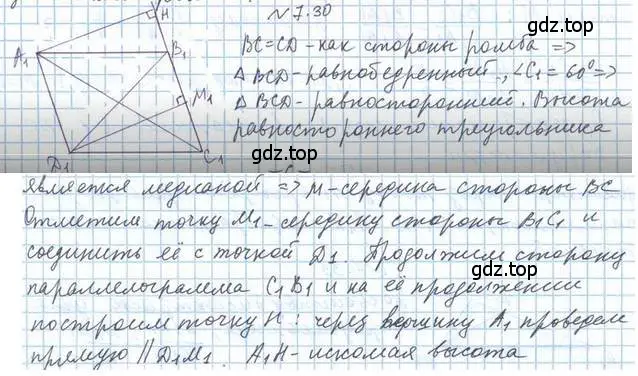 № 7.30
BC=CD - как стороны ромба =>
Δ BCD - равнобедренный, ∠C₁ = 60° =>
Δ BCD - равносторонний. Высота
равностороннего треугольника
является медианой => M - середина стороны BC
Отметим точку M₁ - середину стороны B₁C₁ и
соединить её с точкой D₁. Продолжим сторону
параллелограмма C₁B₁ и на её продолжении
построим точку H : через вершину A₁ проведем
прямую || D₁M₁. A₁H - искомая высота
H
A₁
B₁
M₁
D₁
C₁
gdz.top
gdz.top
gdz.top
gdz.top
gdz.top
gdz.top